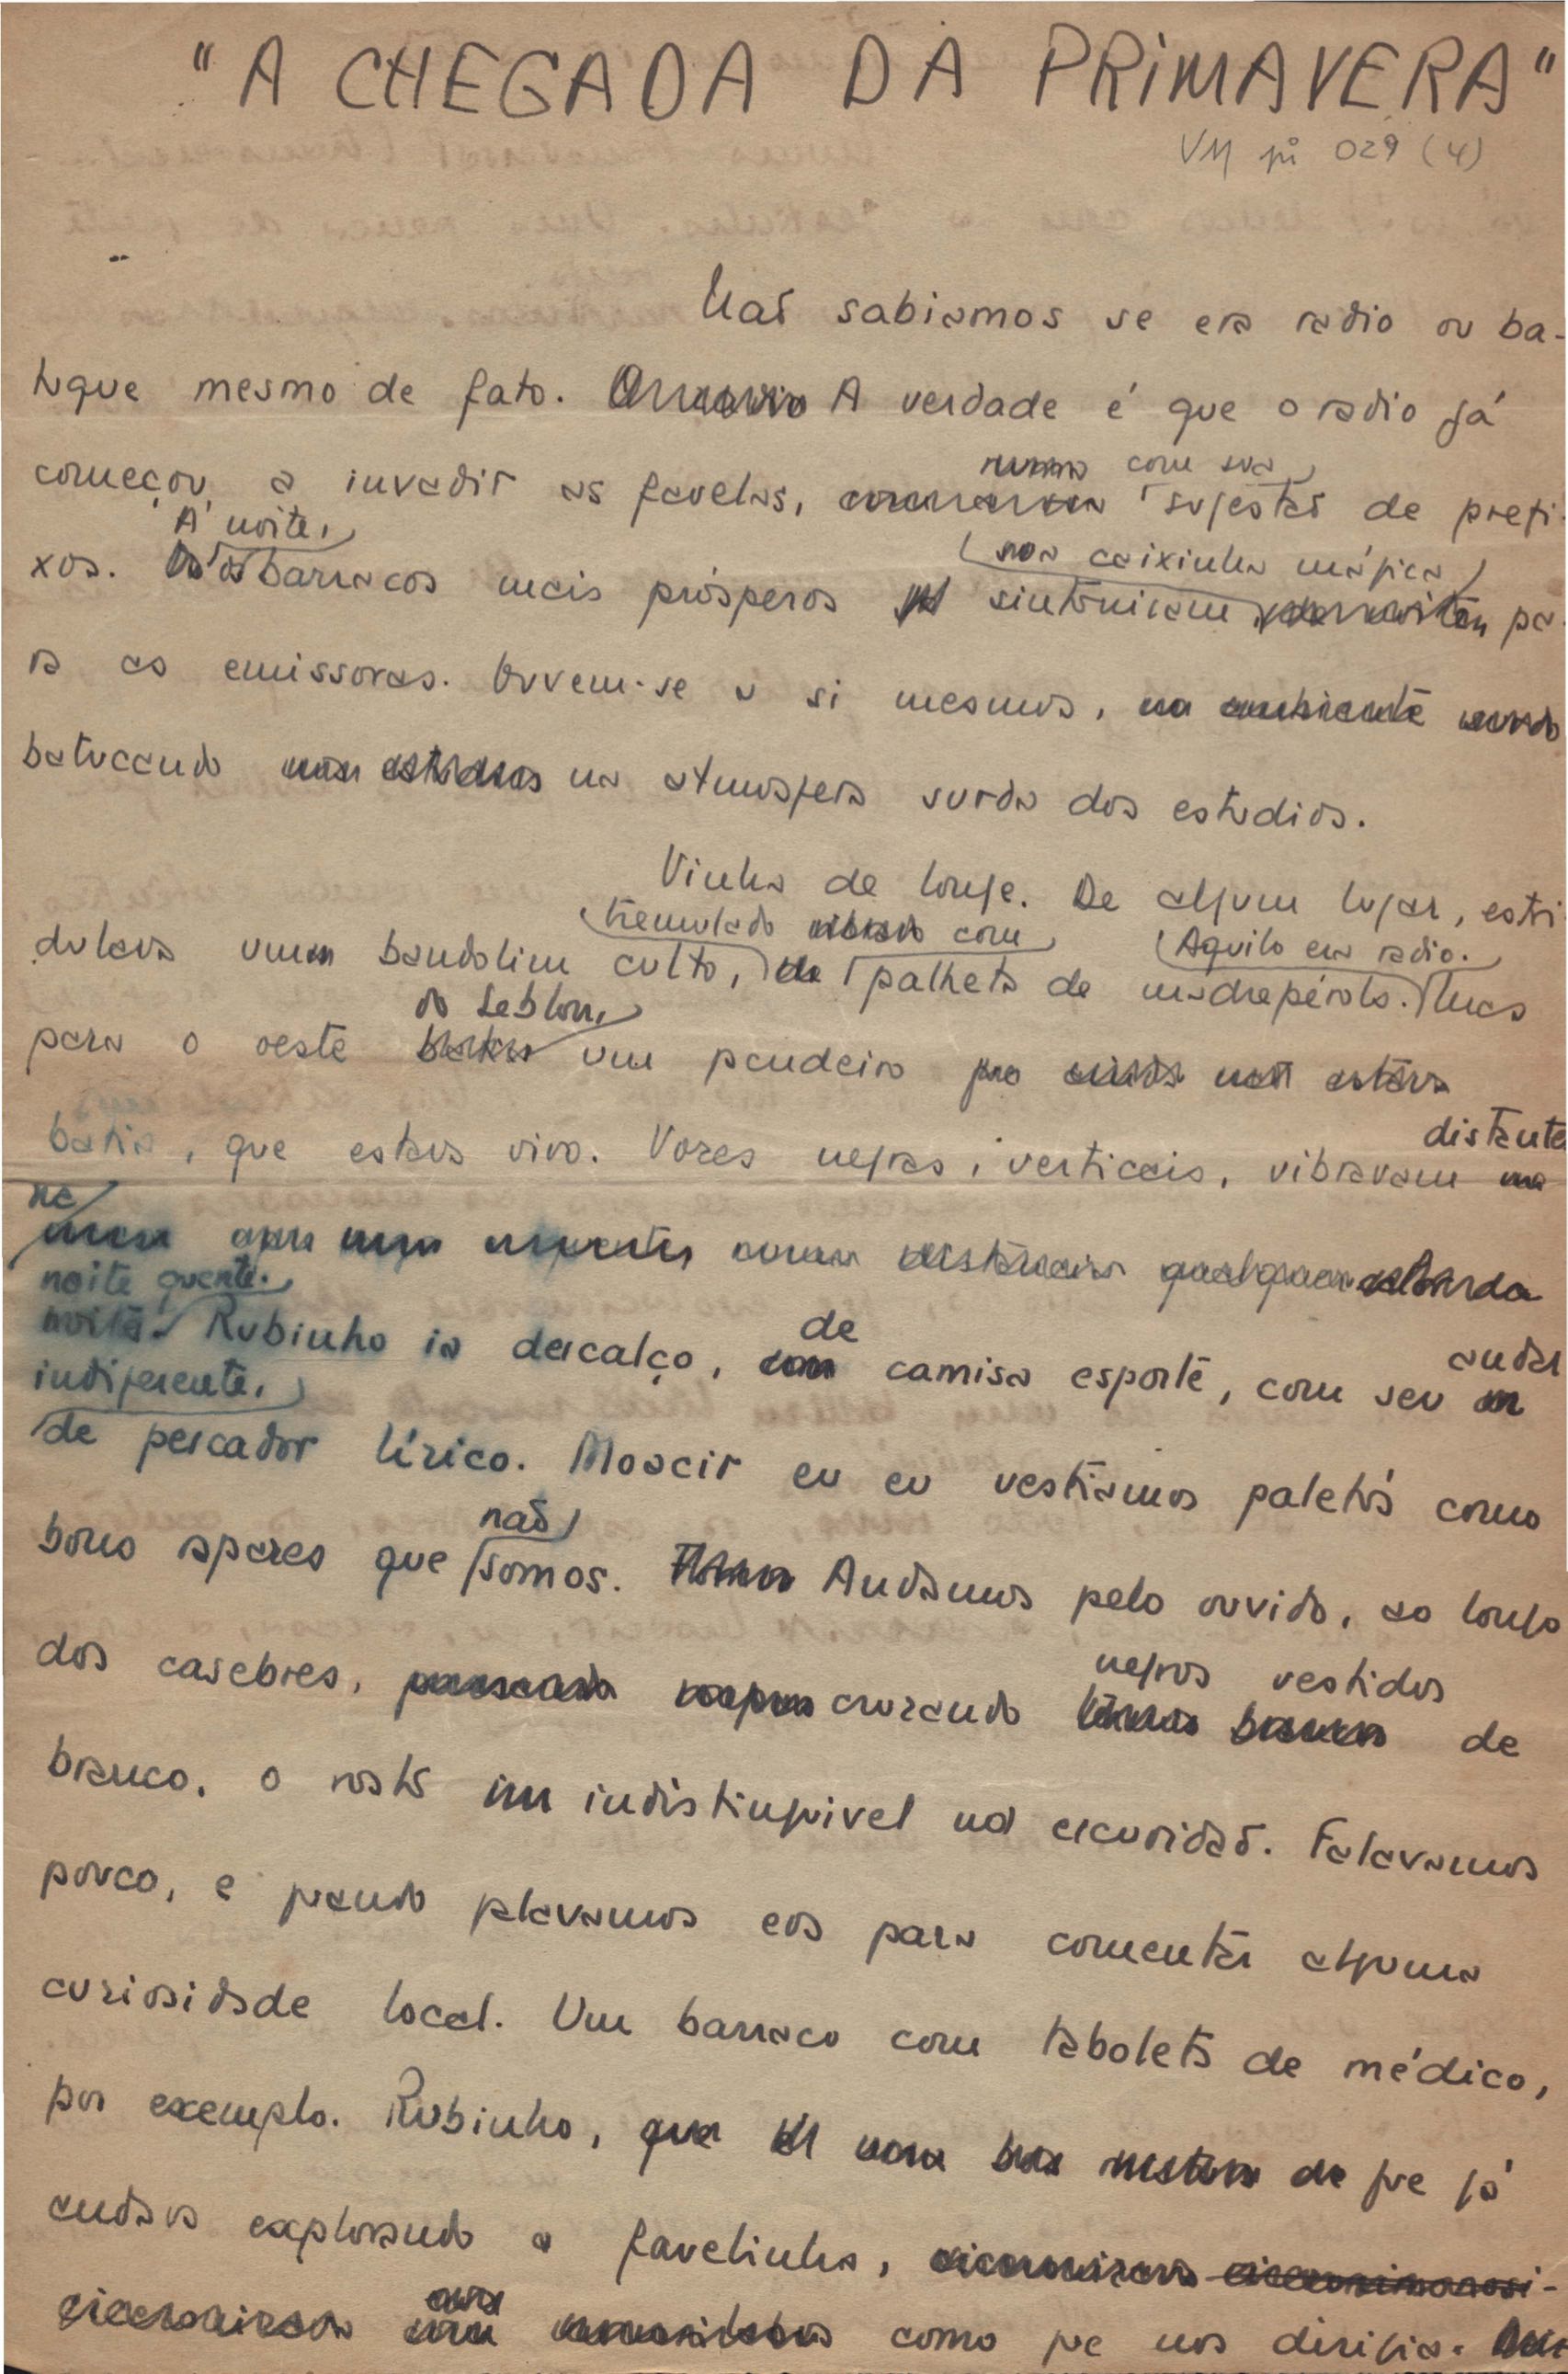 "A CHEGADA DA PRIMAVERA"
VM pi 029 (4)
Não sabiamos se era radio ou ba-
tuque mesmo de fato. A verdade é que o radio já
começou a invadir as favelas, com sua sujestão de prefi-
xos. À noite, os barracos mais prósperos sintonizam sua caixinha mágica pa-
ra as emissoras. Ouvem-se a si mesmos,
batucando na atmosfera surda dos estudios.
Vinha de longe. De algum lugar, estri
dulava um bandolim culto, tremulado com palheta de madrepérola. Aquilo era radio. Mas
para o oeste do Leblon, um pandeiro
batia, que estava vivo. Vozes negras, verticais, vibravam distante
na
noite quente. Rubinho ia descalço, de camisa esporte, com seu andar
indiferente,
de pescador lírico. Moacir eu eu vestiamos paletós como
bons apares que não somos. Andamos pelo ouvido, ao longo
dos casebres, cruzando negros vestidos de
branco, o rosto indistinguivel na escuridão. Falavamos
pouco, e quando falavamos era para comentar alguma
curiosidade local. Um barraco com taboleta de médico,
por exemplo. Rubinho, que já
andava explorando a favelinha,
como que nos dirigia.